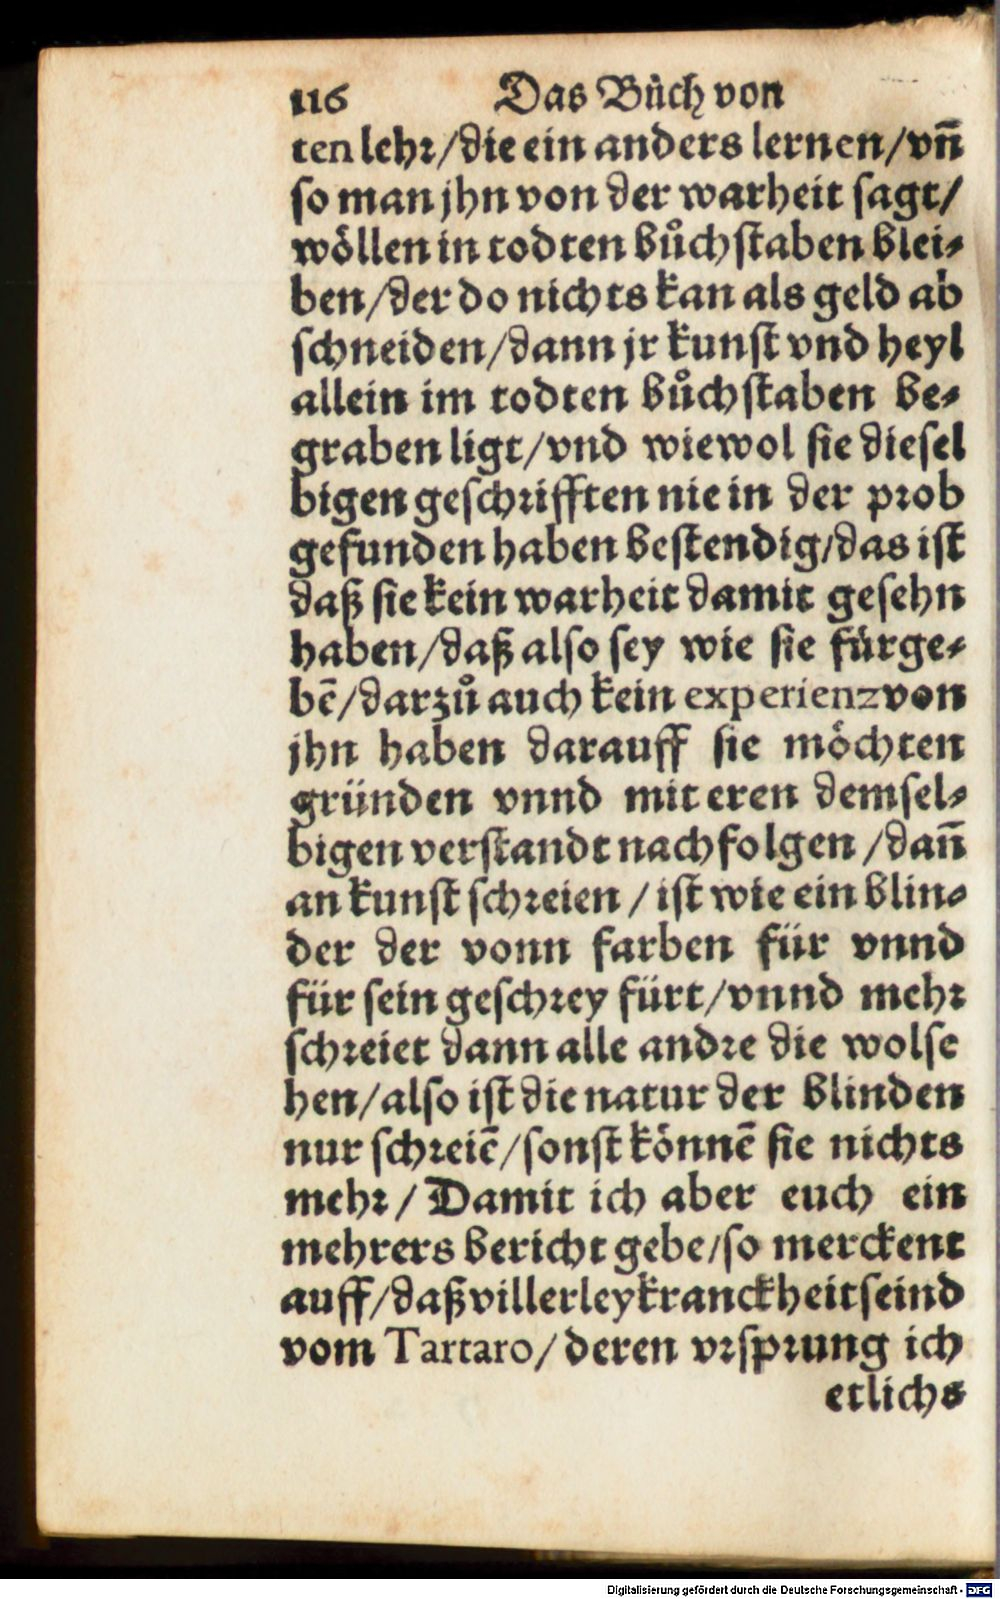 116 Das Bůch von
ten lehr/die ein anders lernen/vn̄
so man jhn von der warheit sagt/
wöllen in todten bůchstaben blei⸗
ben/der do nichts kan als geld ab
schneiden/dann jr kunst vnd heyl
allein im todten bůchstaben be⸗
graben ligt/vnd wiewol sie diesel
bigen geschrifften nie in der prob
gefunden haben bestendig/das ist
daß sie kein warheit damit gesehn
haben/daß also sey wie sie fürge⸗
bē/darzů auch kein experienz von
jhn haben darauff sie möchten
gründen vnnd mit eren demsel⸗
bigen verstandt nachfolgen/dañ
an kunst schreien/ist wie ein blin⸗
der der vonn farben für vnnd
für sein geschrey fürt/vnnd mehr
schreiet dann alle andre die wolse
hen/also ist die natur der blinden
nur schreiē/sonst könnē sie nichts
mehr/Damit ich aber euch ein
mehrers bericht gebe/so merckent
auff/daß villerley kranckheit seind
vom Tartaro/deren vrsprung ich
etlichs
Digitalisierung gefördert durch die Deutsche Forschungsgemeinschaft - DFG